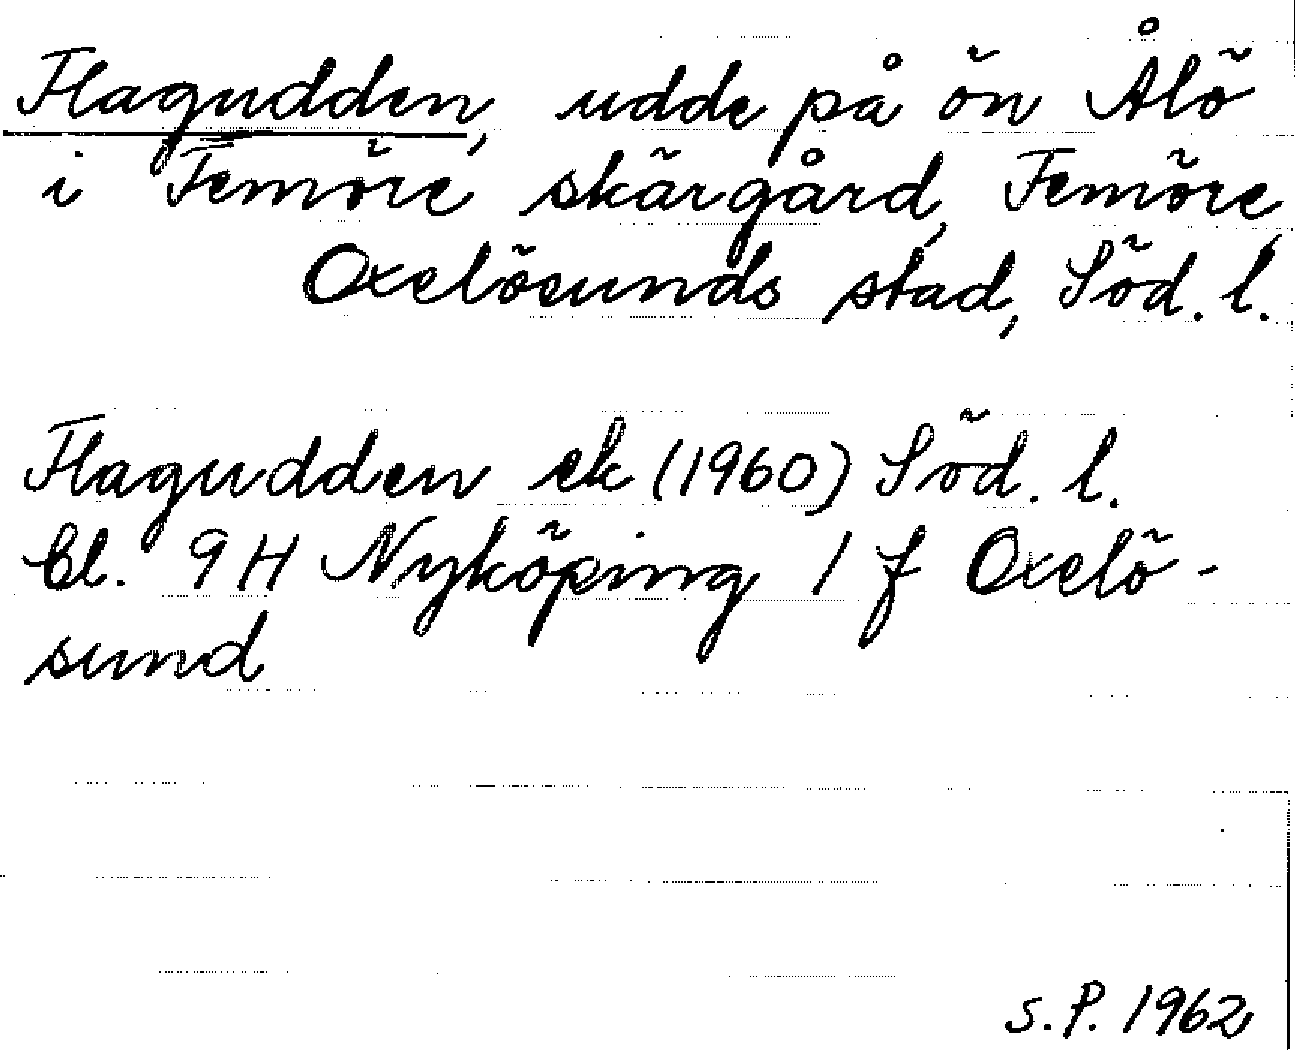 Flagudden, udde på ön Ålö
i Femöre skärgård, Femöre,
Oxelösunds stad, Söd. l.
Flagudden ek (1960) Söd. l.
bl. 9 H Nyköping 1 f Oxelö-
sund
S.P. 1962